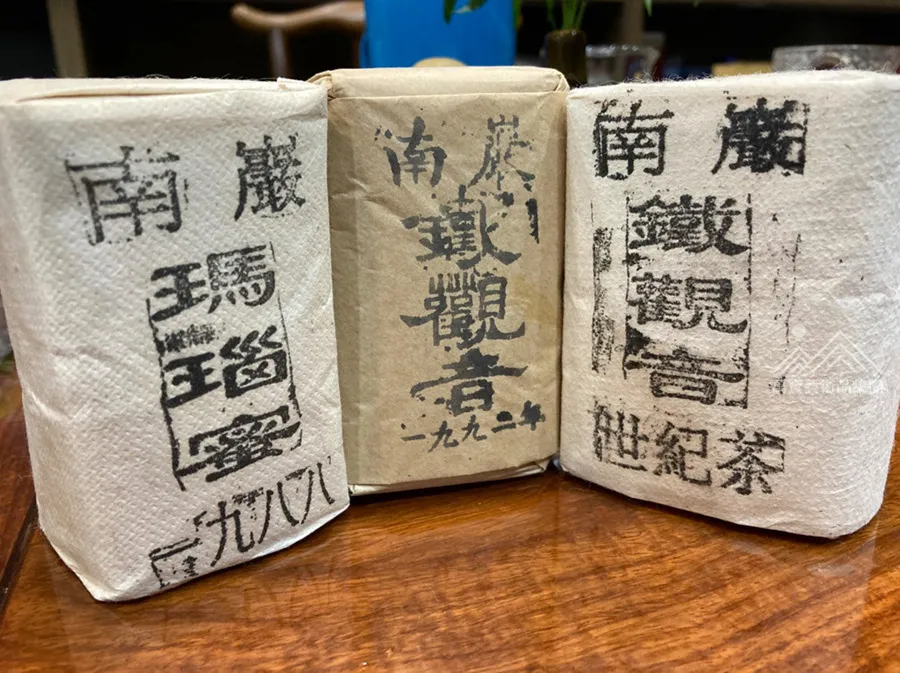 南巖
瑪瑙蜜
一九八八
南巖
鐵觀音
一九九二年
南巖
鐵觀音
世紀茶